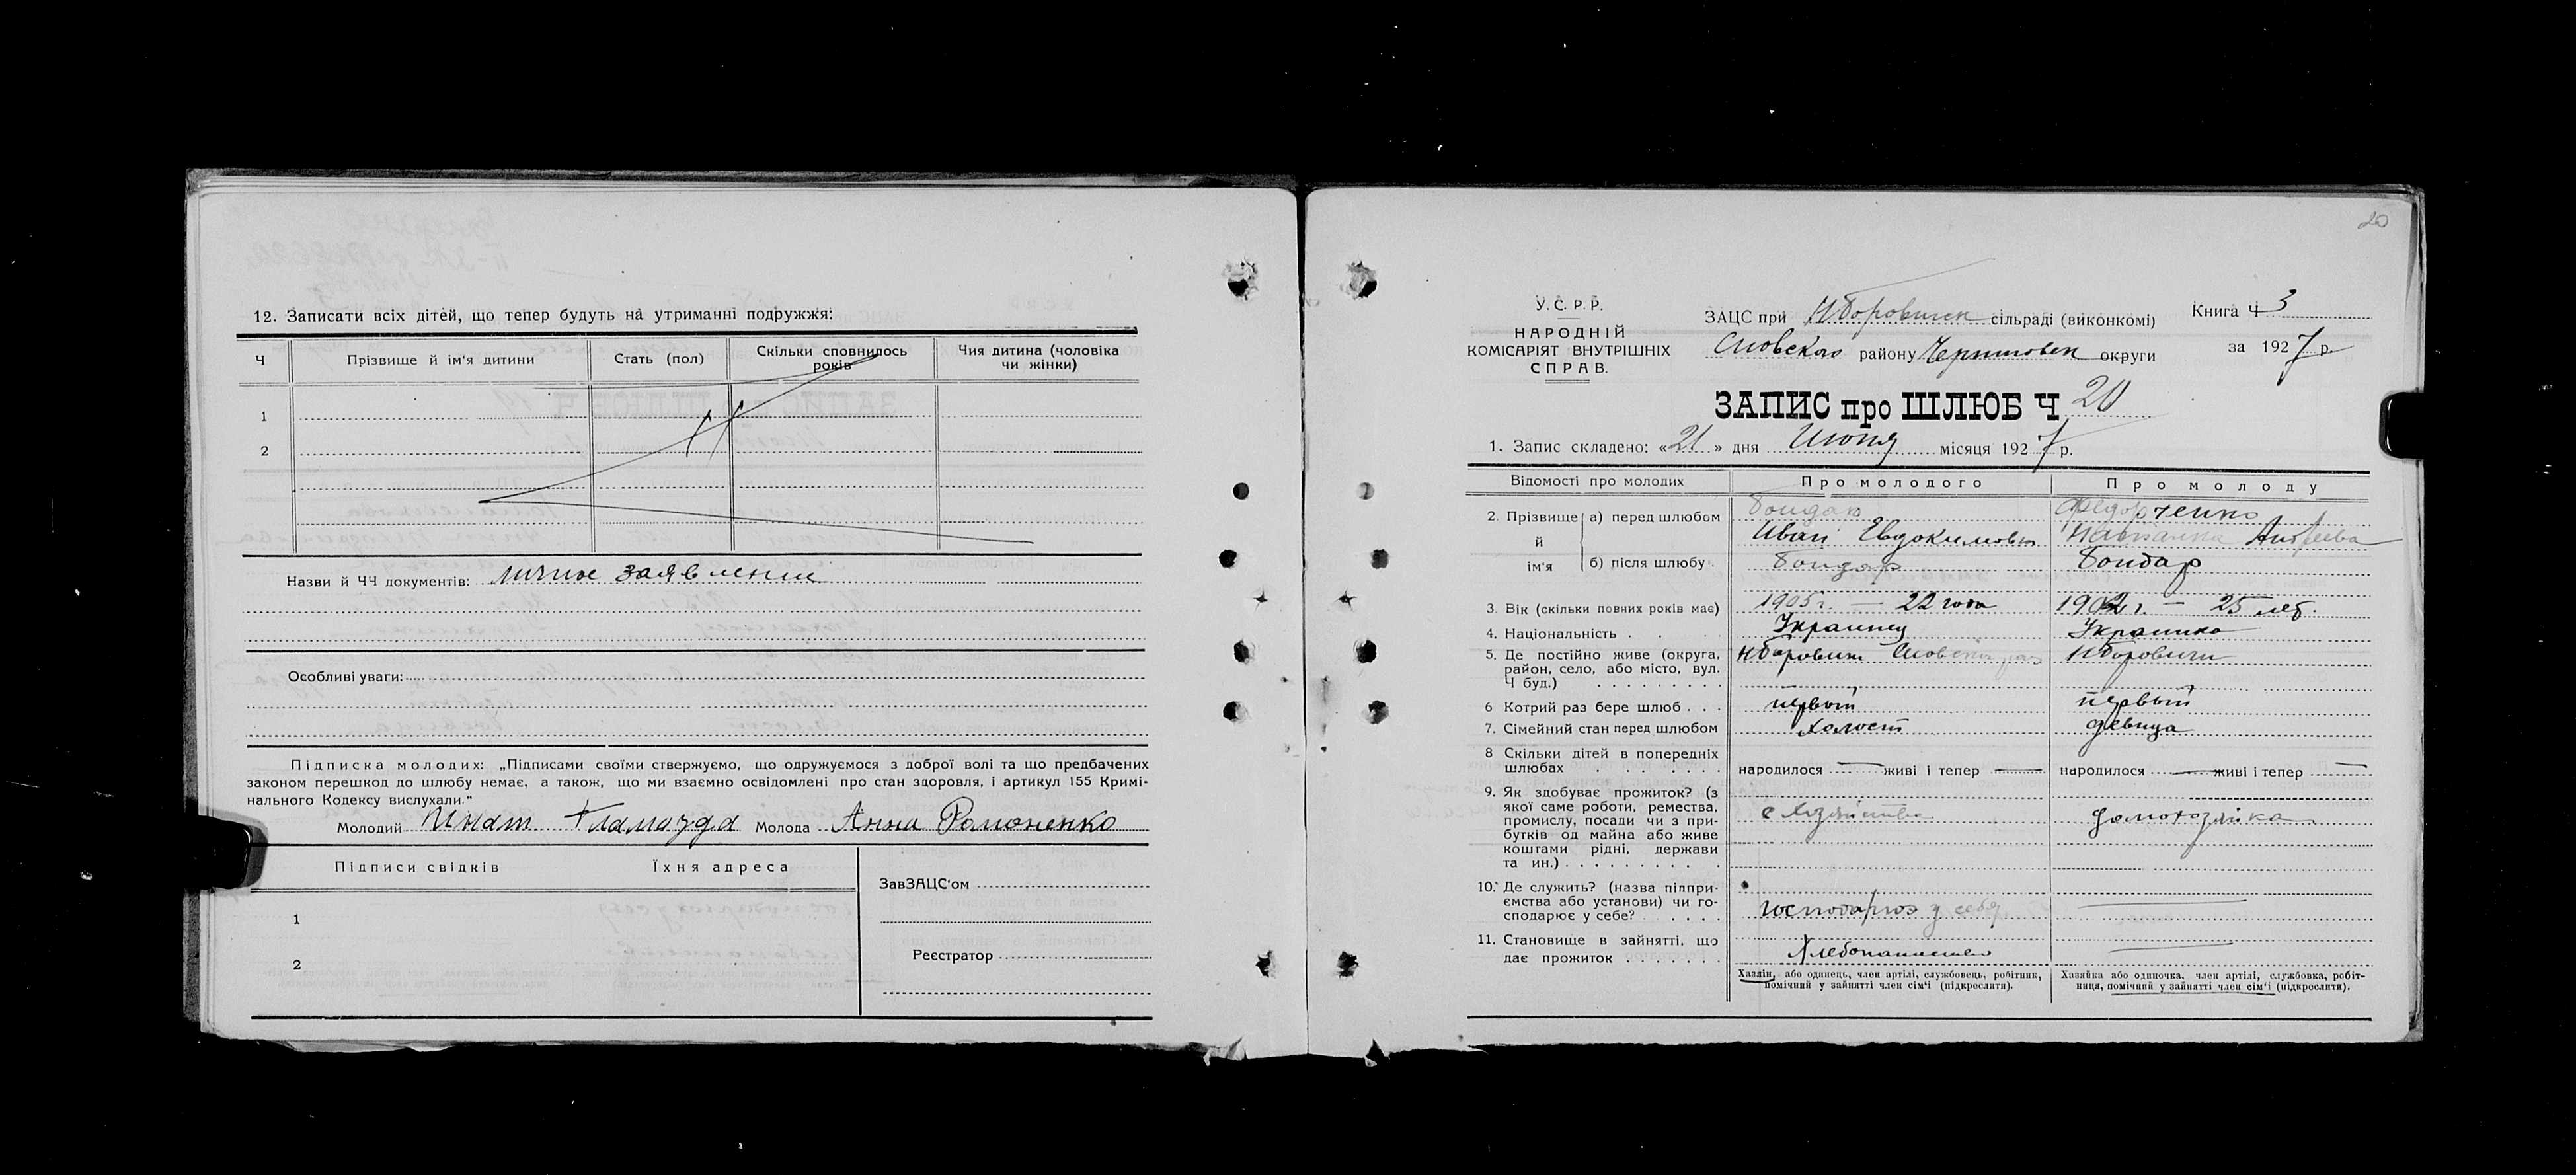 12. Записати всіх дітей, що тепер будуть на утриманні подружжя:
Ч Прізвище й ім'я дитини Стать (пол) Скільки сповнилось років Чия дитина (чоловіка чи жінки)
1
2
Назви й ЧЧ документів: личное заявление
Особливі уваги:
Підписка молодих: „Підписами своїми стверджуємо, що одружуємося з доброї волі та що предбачених
законом перешкод до шлюбу немає, а також, що ми взаємно освідомлені про стан здоровля, і артикул 155 Кримі-
нального Кодексу вислухали."
Молодий Игнат Молода Анна Романенко
Підписи свідків Їхня адреса
ЗавЗАЦС'ом
1
Реєстратор
2
20
У.С.Р.Р.
НАРОДНІЙ
КОМІСАРІЯТ ВНУТРІШНІХ
СПРАВ.
ЗАЦС при Н Боровичск сільраді (виконкомі)
Сновского району Черниговск округи
Книга Ч 3
за 1927 р.
ЗАПИС про ШЛЮБ Ч 20
1. Запис складено: «21» дня Июня місяця 1927 р.
Відомості про молодих Про молодого Про молоду
2. Прізвище й ім'я а) перед шлюбом Бондар Федорченко
Иван Евдокимович Андреева
б) після шлюбу Бондар Бондар
3. Вік (скільки повних років має) 1905 г. — 22 года 1902 г. — 25 лет.
4. Національність Украинец Украинка
5. Де постійно живе (округа, район, село, або місто, вул. Ч буд.) Н Боровичи Сновского Н Боровичи
6 Котрий раз бере шлюб первый первый
7. Сімейний стан перед шлюбом холост девица
8 Скільки дітей в попередніх шлюбах народилося — живі і тепер — народилося — живі і тепер —
9. Як здобуває прожиток? (з якої саме роботи, ремества, промислу, посади чи з прибутків од майна або живе коштами рідні, держави та ин.) с хозяйства домохозяйка
10. Де служить? (назва підпри-
ємства або установи) чи го-
сподарює у себе? господарює у себя —
11. Становище в зайнятті, що
дає прожиток Хлебопашество —
Хазяїн, або одинець, член артілі, службовець, робітник,
помічний у зайнятті член сім'ї (підкреслити).
Хазяйка або одиночка, член артілі, службовка, робіт-
ниця, помічний у зайнятті член сім'ї (підкреслити).